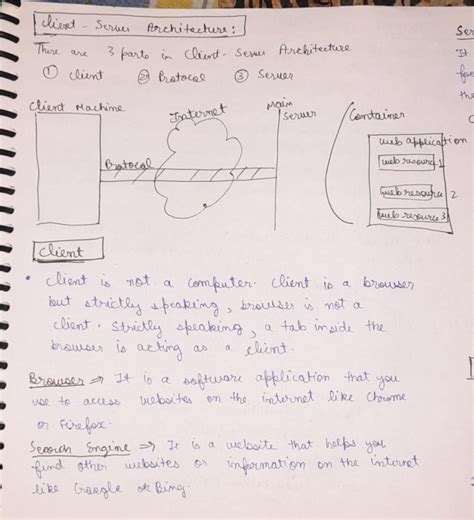 Client-Server Architecture:
There are 3 parts in Client-Server Architecture
① Client ② Protocol ③ Server
Client Machine
Internet
Main
Server
Container
Protocol
web application
web resource 1
web resource 2
web resource 3
Client
• Client is not a computer. Client is a browser
but strictly speaking, browser is not a
client. Strictly speaking, a tab inside the
browser is acting as a client.
Browser ⇒ It is a software application that you
use to access websites on the internet like Chrome
or Firefox.
Search Engine ⇒ It is a website that helps you
find other websites or information on the internet
like Google or Bing.
Ser
It
the